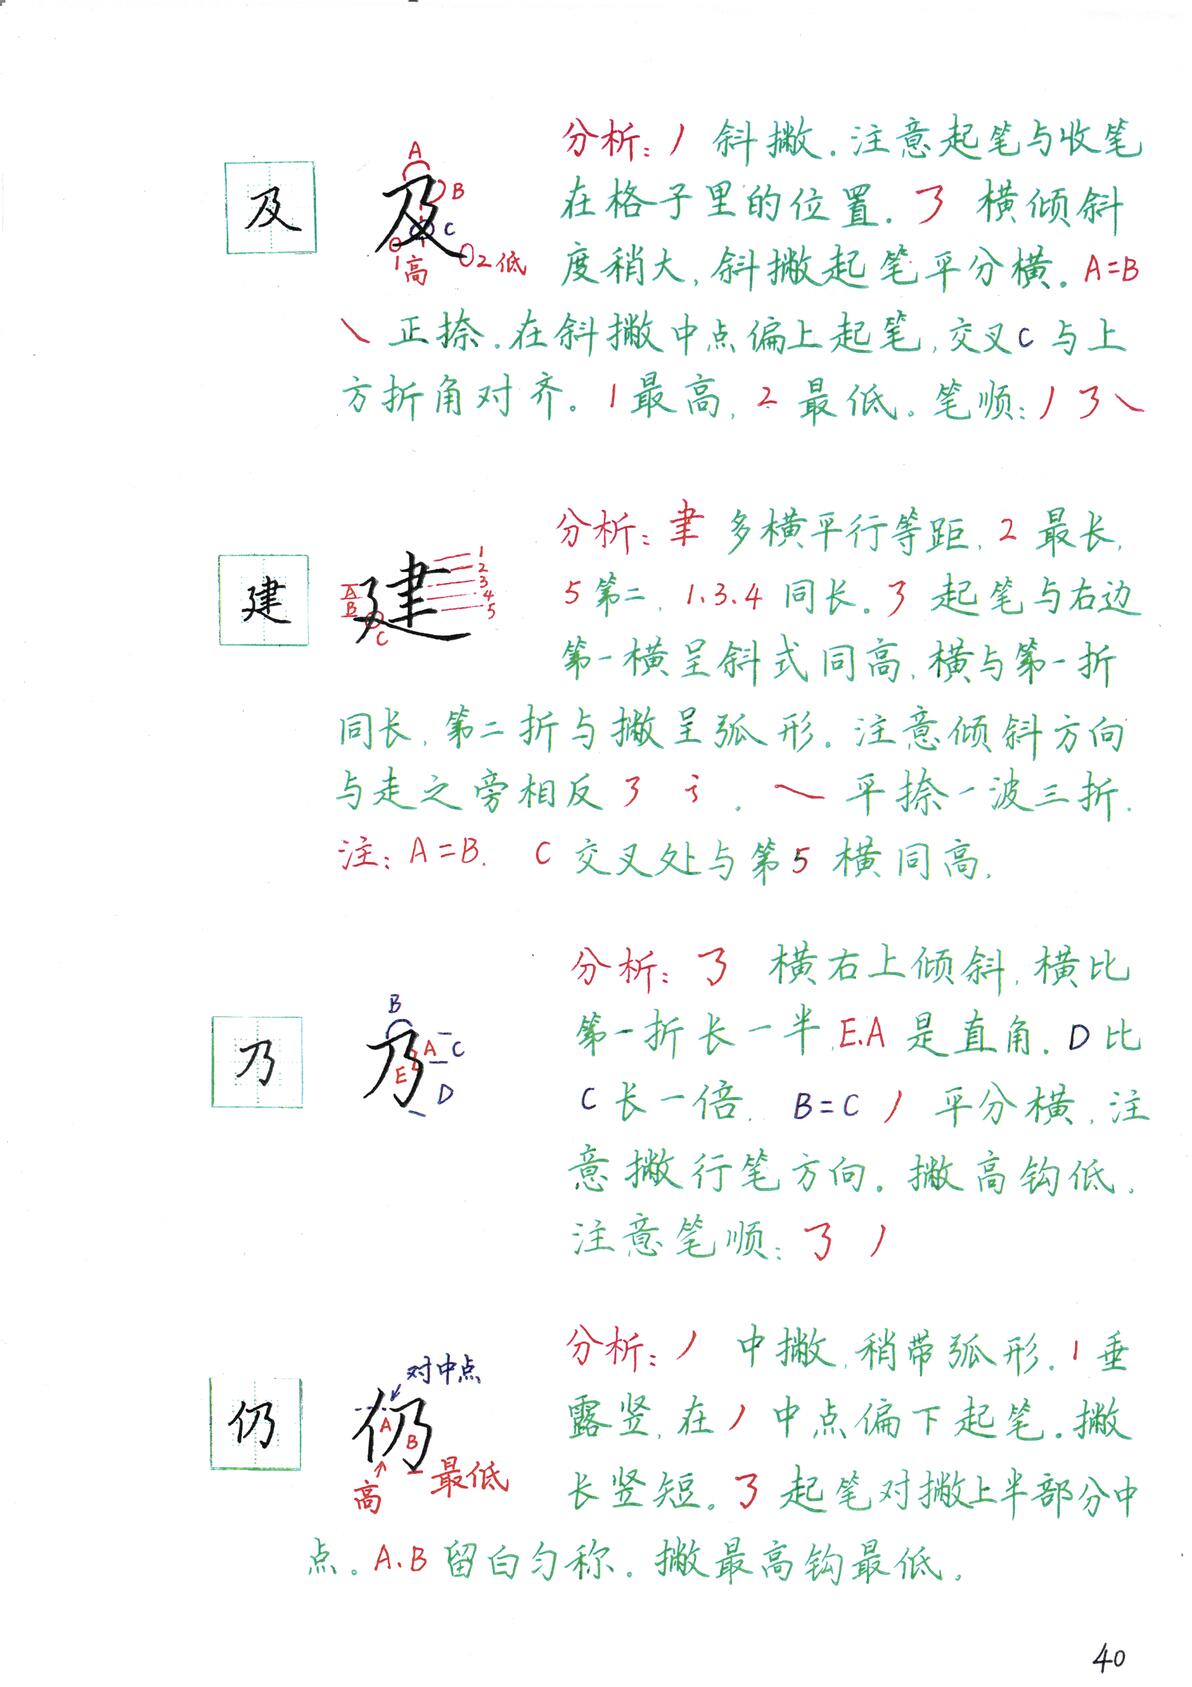 分析：丿 斜撇．注意起笔与收笔
在格子里的位置．㇋ 横倾斜
度稍大，斜撇起笔平分横。A=B
㇏ 正捺．在斜撇中点偏上起笔，交叉C与上
方折角对齐。1最高，2最低。笔顺：丿㇋㇏
及
及
A
B
C
1高
2低
分析：⺻ 多横平行等距，2最长，
5第二，1.3.4同长。㇋ 起笔与右边
第一横呈斜式同高，横与第一折
同长，第二折与撇呈弧形．注意倾斜方向
与走之旁相反 ㇋ ．㇏ 平捺一波三折．
注：A=B. C交叉处与第5横同高．
建
建
A
B
C
1
2
3
4
5
分析：㇋ 横右上倾斜，横比
第一折长一半．E.A是直角．D比
C长一倍．B=C 丿 平分横，注
意撇行笔方向。撇高钩低．
注意笔顺：㇋ 丿
乃
乃
B
A
C
E
D
分析：丿 中撇，稍带弧形．丨垂
露竖，在丿中点偏下起笔．撇
长竖短。㇋ 起笔对撇上半部分中
点。A.B留白匀称．撇最高钩最低．
仍
仍
对中点
A
B
高
最低
40